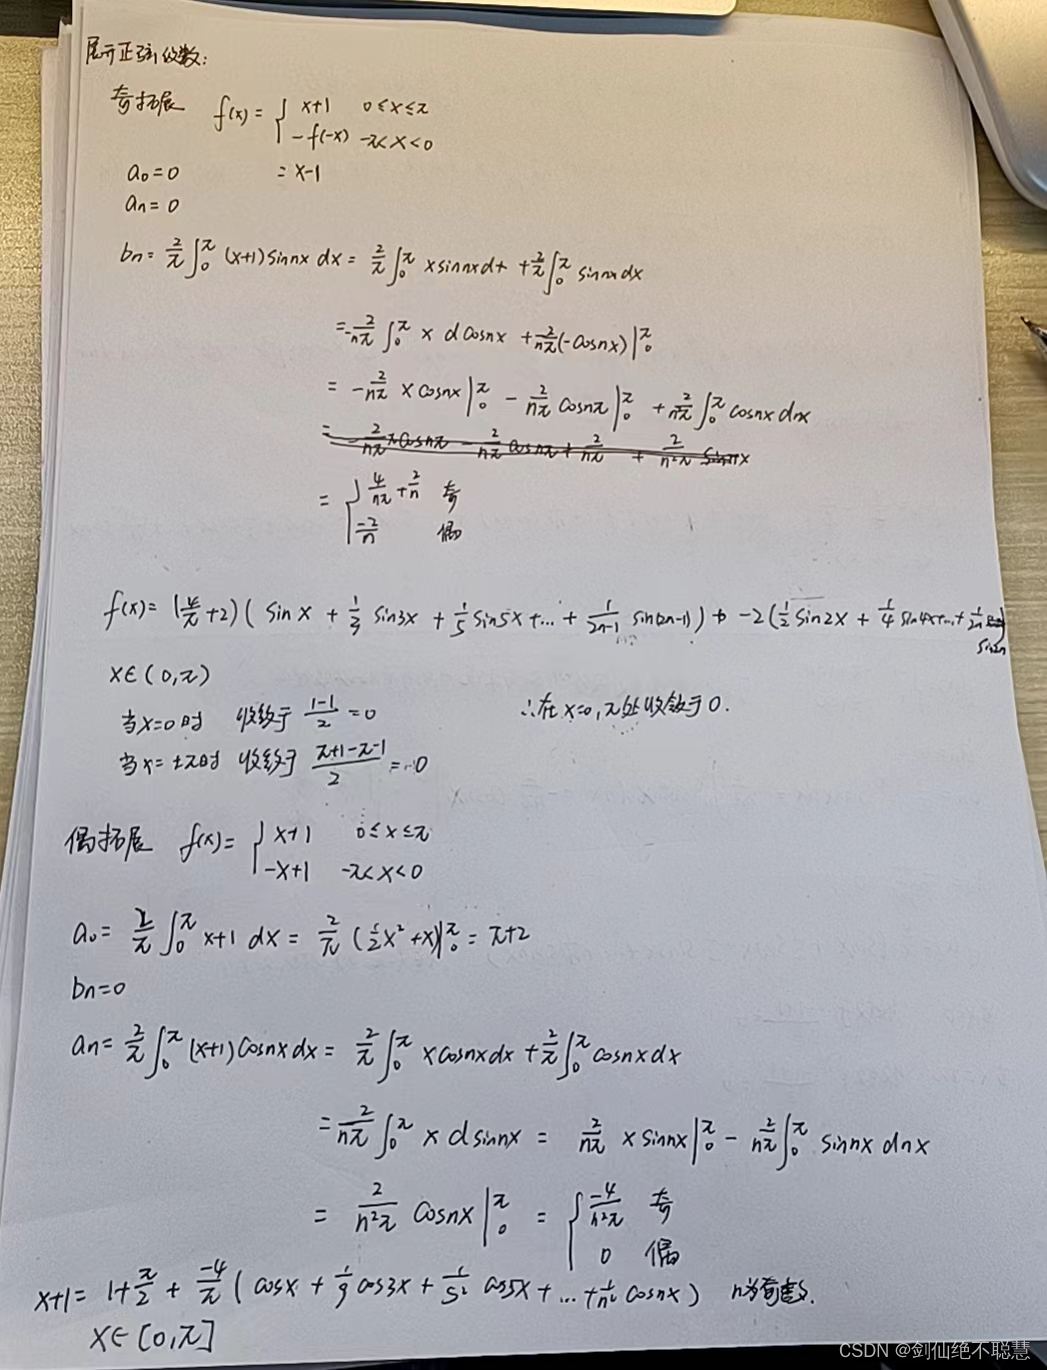 展开正弦级数:
奇拓展 f(x)= { x+1 0≤x≤π
-f(-x) -π<x<0
a₀=0 = x-1
aₙ=0
bₙ= 2/π ∫₀^π (x+1)sinnx dx = 2/π ∫₀^π xsinnxdt + 2/π ∫₀^π sinnxdx
= -2/nπ ∫₀^π x dcosnx + 2/nπ (-cosnx)|₀^π
= -2/nπ xcosnx|₀^π - 2/nπ cosnx|₀^π + 2/nπ ∫₀^π cosnx dnx
= { 4/nπ + 2/n 奇
-2/n 偶
f(x)= (4/π +2)( sinx + 1/3 sin3x + 1/5 sin5x+...+ 1/2n-1 sin(2n-1)) + -2(1/2 sin2x + 1/4 sin4x+...+ 1/2n sin2n
x∈(0,π)
当x=0时 收敛于 1-1/2 =0 ∴在x=0,π处收敛于0.
当x=±π时 收敛于 π+1-π-1/2 =0
偶拓展 f(x)= { x+1 0≤x≤π
-x+1 -π<x<0
a₀= 2/π ∫₀^π x+1 dx = 2/π (1/2 x²+x)|₀^π = π+2
bₙ=0
aₙ= 2/π ∫₀^π (x+1)cosnxdx = 2/π ∫₀^π xcosnxdx + 2/π ∫₀^π cosnxdx
= 2/nπ ∫₀^π x dsinnx = 2/nπ xsinnx|₀^π - 2/nπ ∫₀^π sinnx dnx
= 2/n²π cosnx|₀^π = { -4/n²π 奇
0 偶
x+1= 1+ π/2 + -4/π ( cosx + 1/9 cos3x + 1/5² cos5x +...+ 1/n² cosnx) n为奇数.
x∈[0,π]
CSDN @剑仙绝不聪慧